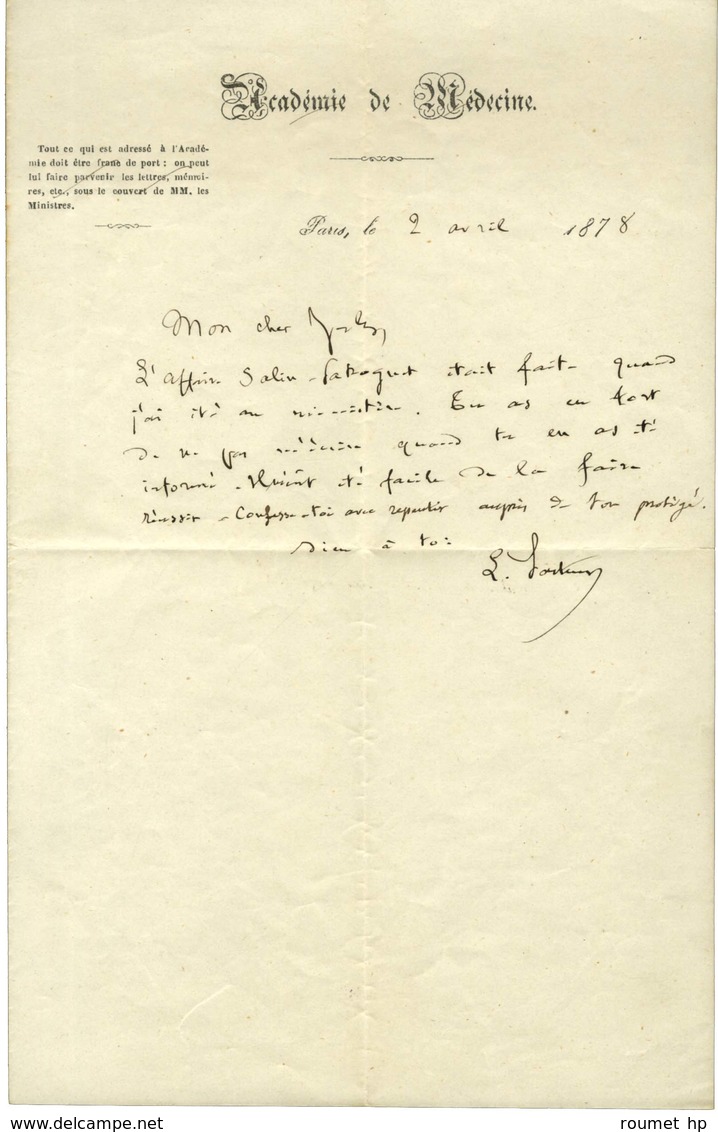 Académie de Médecine.
Tout ce qui est adressé à l'Acadé-
mie doit être franc de port : on peut
lui faire parvenir les lettres, mémoi-
res, etc., sous le couvert de MM. les
Ministres.
Paris, le 2 avril 1878
Mon cher
L'affaire Salin était faite quand
j'ai été au ministère. Tu as eu tort
de ne pas m'écrire quand tu en as été
informé. été facile de la faire
réussir. Confesse-toi avec repentir auprès de ton protégé.
Bien à toi
L. Pasteur
www.delcampe.net
roumet hp